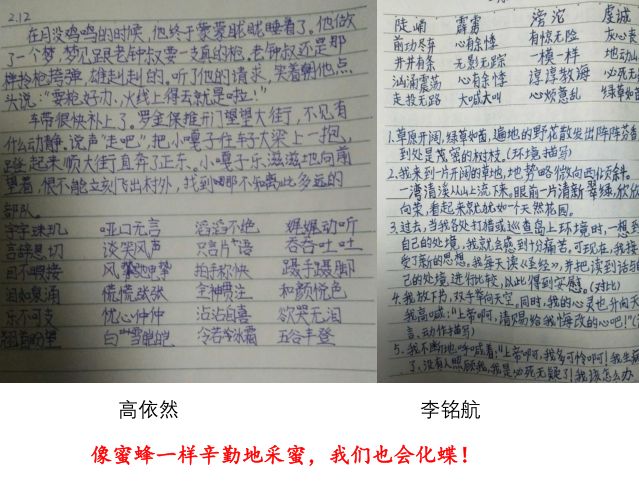 2.12
在月没鸡鸣的时候，他终于蒙蒙眬眬睡着了。他做
了一个梦，梦见跟老钟叔要一支真的枪。老钟叔还是那
样拎枪挎弹，雄赳赳的。听了他的请求，笑着朝他点
头说：“要枪好办，火线上得去就是啦！”
车带很快补上了。罗金保推开门望望大街，不见有
什么动静，说声“走吧”，把小嘎子往车子大梁上一抱，
起来顺大街直奔了正东。小嘎子乐滋滋地向前
望着，恨不能立刻飞出村外，找到那不知离此多远的
部队。
字字珠玑 哑口无言 滔滔不绝 娓娓动听
言辞恳切 谈笑风声 只言片语 吞吞吐吐
目不暇接 风驰电掣 拍手称快 蹑手蹑脚
泪如泉涌 慌慌张张 全神贯注 和颜悦色
乐不可支 忧心忡忡 沾沾自喜 欲哭无泪
白雪皑皑 冷若冰霜 五谷丰登
陡峭 霹雳 滂沱 虔诚
前功尽弃 心有余悸 有惊无险 灰心丧
井井有条 无影无踪 一模一样 地动山
汹涌震荡 心有余悸 淳淳教诲 必死无
走投无路 大喊大叫 心烦意乱 绿草如茵
1.草原开阔，绿草如茵，遍地的野花散发出阵阵芬香
到处是茂密的树枝。（环境描写）
2.我来到一片开阔的草地，地势略微向西倾斜。
一湾清溪从山上流下来。眼前一片清新翠绿，欣欣
向荣，看起来就犹如一个天然花园。
3.过去，当我各处打猎或巡查岛上环境时，一想到
自己的处境，我就会感到十分痛苦，可现在，我接
受了新的思想。我每天读《圣经》，并把读到话
己的处境，进行比较，以此得到安慰。（对比）
4.我放下书，双手举向天空，同时，我的心灵也升向天
我高喊：“上帝啊，请赐给我悔改的心吧！”（
言、动作描写）
5.我不断地呼喊着：“上帝啊，我多可怜啊！我生病
了，没有人照顾我，我是必死无疑了！我该怎么办
高依然 李铭航
像蜜蜂一样辛勤地采蜜，我们也会化蝶！